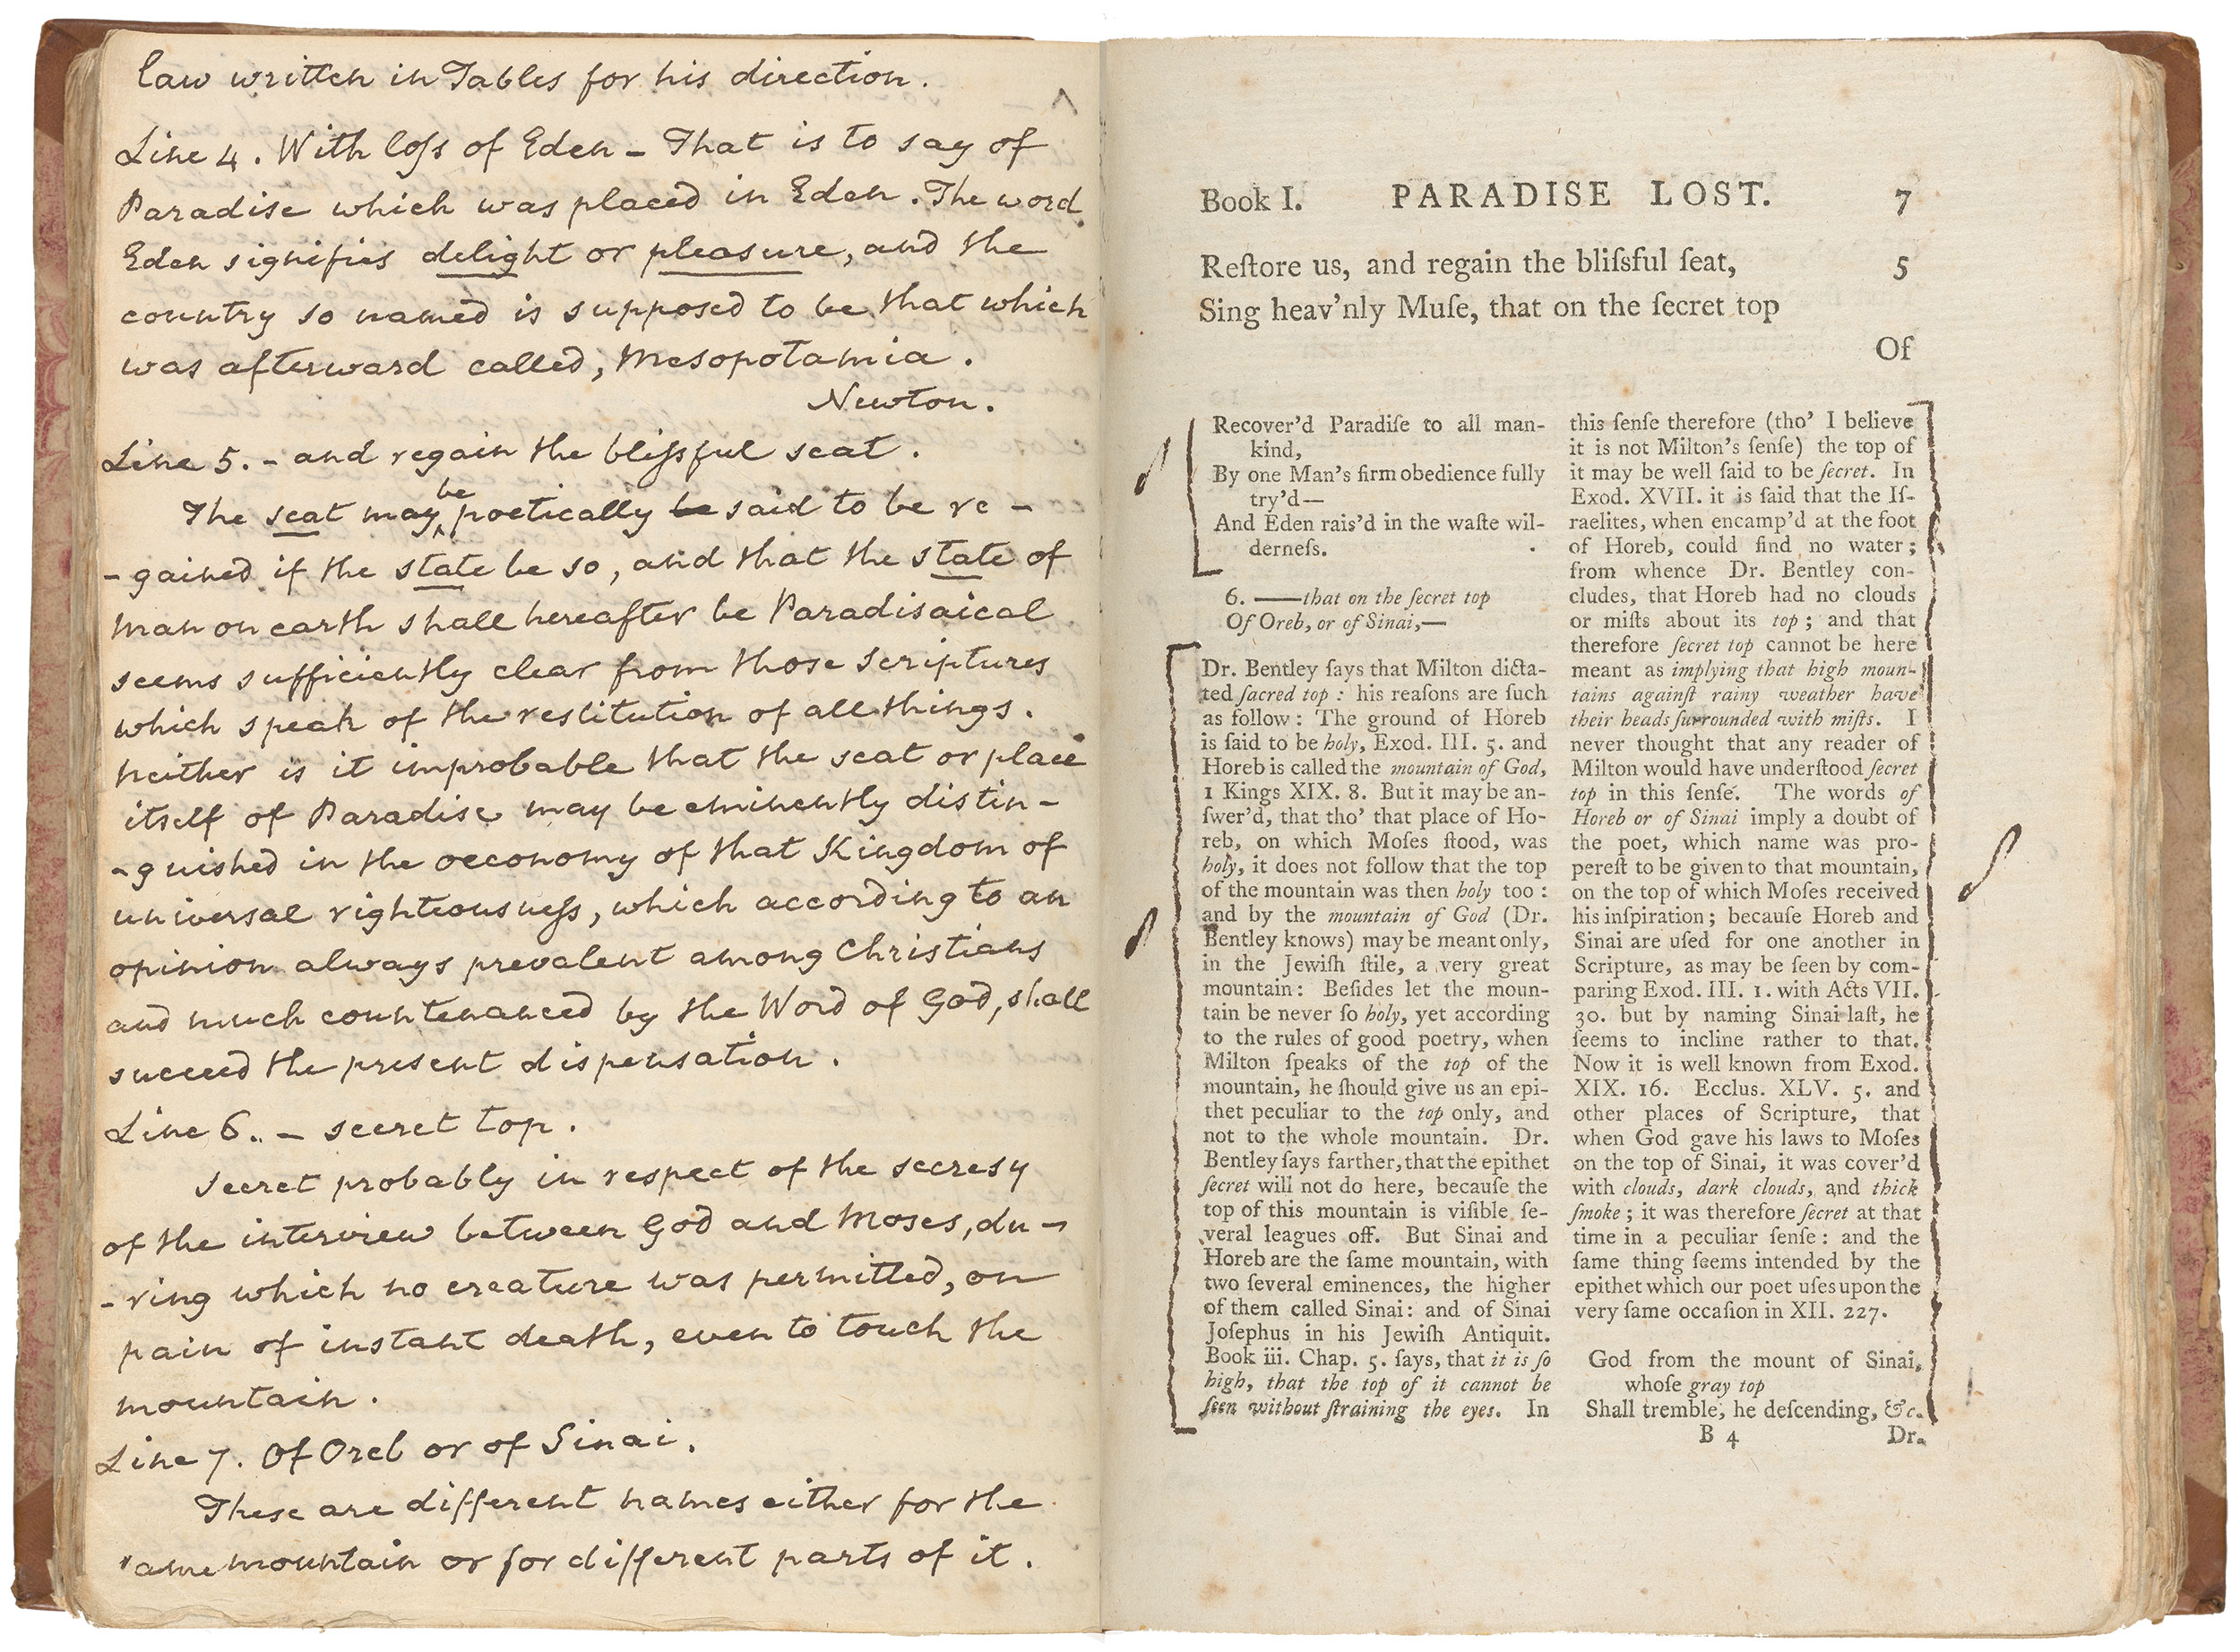 law written in Tables for his direction.
^
Line 4. With loſs of Eden – That is to say of
Paradise which was placed in Eden. The word
Eden signifies delight or pleasure, and the
country so named is supposed to be that which
was afterward called, Mesopotamia.
Newton.
Line 5. – and regain the bliſsful seat.
be
The seat may ‸ poetically be said to be re –
– gained if the state be so, and that the state of
Man on earth shall hereafter be Paradisaical
seems sufficiently clear from those Scriptures
which speak of the restitution of all things.
Neither is it improbable that the seat or place
itself of Paradise may be eminently distin –
– guished in the oeconomy of that Kingdom of
universal righteousneſs, which according to an
opinion always prevalent among Christians
and much countenanced by the Word of God, shall
succeed the present dispensation.
Line 6. – secret top.
Secret probably in respect of the secresy
of the interview between God and Moses, du –
– ring which no creature was permitted, on
pain of instant death, even to touch the
mountain.
Line 7. Of Oreb or of Sinai.
These are different names either for the
same mountain or for different parts of it.
Book I. PARADISE LOST. 7
Reſtore us, and regain the bliſsful ſeat, 5
Sing heav'nly Muſe, that on the ſecret top
Of
Recover'd Paradiſe to all man-
kind,
By one Man's firm obedience fully
try'd—
And Eden rais'd in the waſte wil-
derneſs.
6. ——that on the ſecret top
Of Oreb, or of Sinai,—
Dr. Bentley ſays that Milton dicta-
ted ſacred top : his reaſons are ſuch
as follow : The ground of Horeb
is ſaid to be holy, Exod. III. 5. and
Horeb is called the mountain of God,
1 Kings XIX. 8. But it may be an-
ſwer'd, that tho' that place of Ho-
reb, on which Moſes ſtood, was
holy, it does not follow that the top
of the mountain was then holy too :
and by the mountain of God (Dr.
Bentley knows) may be meant only,
in the Jewiſh ſtile, a very great
mountain : Beſides let the moun-
tain be never ſo holy, yet according
to the rules of good poetry, when
Milton ſpeaks of the top of the
mountain, he ſhould give us an epi-
thet peculiar to the top only, and
not to the whole mountain. Dr.
Bentley ſays farther, that the epithet
ſecret will not do here, becauſe the
top of this mountain is viſible ſe-
veral leagues off. But Sinai and
Horeb are the ſame mountain, with
two ſeveral eminences, the higher
of them called Sinai : and of Sinai
Joſephus in his Jewiſh Antiquit.
Book iii. Chap. 5. ſays, that it is ſo
high, that the top of it cannot be
ſeen without ſtraining the eyes. In
this ſenſe therefore (tho' I believe
it is not Milton's ſenſe) the top of
it may be well ſaid to be ſecret. In
Exod. XVII. it is ſaid that the Iſ-
raelites, when encamp'd at the foot
of Horeb, could find no water ;
from whence Dr. Bentley con-
cludes, that Horeb had no clouds
or miſts about its top ; and that
therefore ſecret top cannot be here
meant as implying that high moun-
tains againſt rainy weather have
their heads ſurrounded with miſts. I
never thought that any reader of
Milton would have underſtood ſecret
top in this ſenſe. The words of
Horeb or of Sinai imply a doubt of
the poet, which name was pro-
pereſt to be given to that mountain,
on the top of which Moſes received
his inſpiration ; becauſe Horeb and
Sinai are uſed for one another in
Scripture, as may be ſeen by com-
paring Exod. III. 1. with Acts VII.
30. but by naming Sinai laſt, he
ſeems to incline rather to that.
Now it is well known from Exod.
XIX. 16. Ecclus. XLV. 5. and
other places of Scripture, that
when God gave his laws to Moſes
on the top of Sinai, it was cover'd
with clouds, dark clouds, and thick
ſmoke ; it was therefore ſecret at that
time in a peculiar ſenſe : and the
ſame thing ſeems intended by the
epithet which our poet uſes upon the
very ſame occaſion in XII. 227.
God from the mount of Sinai,
whoſe gray top
Shall tremble, he deſcending, &c.
B 4 Dr.